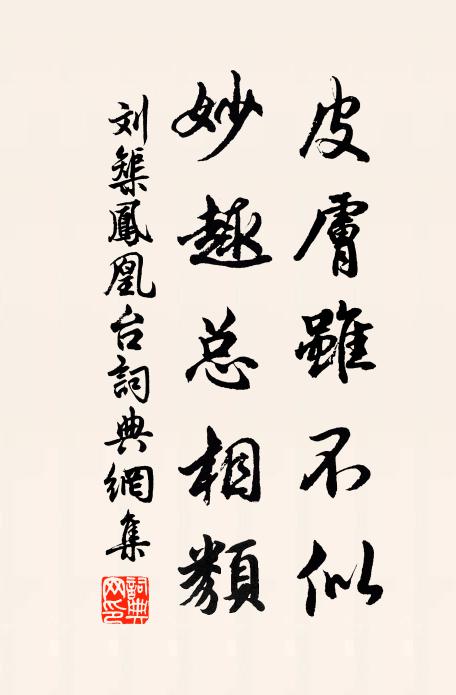 皮膚雖不似
妙趣总相類
刘槩鳳凰台詞典網集
詞典网印